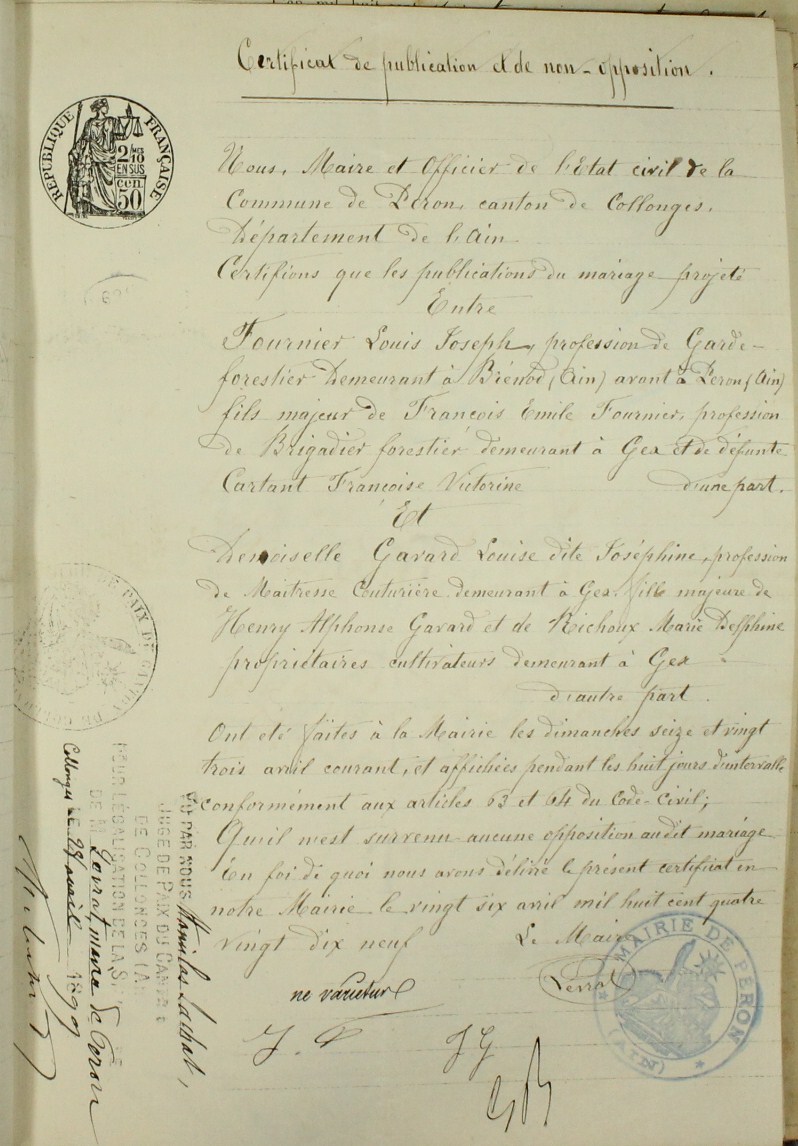 Certificat de publication et de non-opposition.
RÉPUBLIQUE FRANÇAISE
2/10 EN SUS
50 cen.
Nous, Maire et Officier de l'Etat civil de la
Commune de Péron, canton de Collonges,
Département de l'Ain
Certifions que les publications du mariage projeté
Entre
Fournier Louis Joseph, profession de Garde-
forestier demeurant à Biénod (Ain) avant à Péron (Ain)
fils majeur de François Emile Fournier, profession
de Brigadier forestier demeurant à Gex et de défunte
Cartant Françoise Victorine d'une part.
Et
Demoiselle Gavard Louise dite Joséphine, profession
de Maitresse Couturière demeurant à Gex fille majeure de
Henry Alphonse Gavard et de Richoux Marie Delphine
propriétaires cultivateurs demeurant à Gex
d'autre part.
Ont été faites à la Mairie les dimanches seize et vingt
trois avril courant, et affichées pendant les huit jours d'intervalle
conformément aux articles 63 et 64 du Code-Civil;
Qu'il n'est survenu aucune opposition audit mariage
En foi de quoi nous avons délivré le présent certificat en
notre Mairie le vingt six avril mil huit cent quatre
vingt dix neuf Le Maire
Perrot
ne varietur
MAIRIE DE PÉRON
(AIN)
VU PAR NOUS Stanislas Lachat,
JUGE DE PAIX DU CANTON
DE COLLONGES (A
POUR LÉGALISATION DE LA S
DE M. maire de Péron
Collonges LE 28 avril 1899